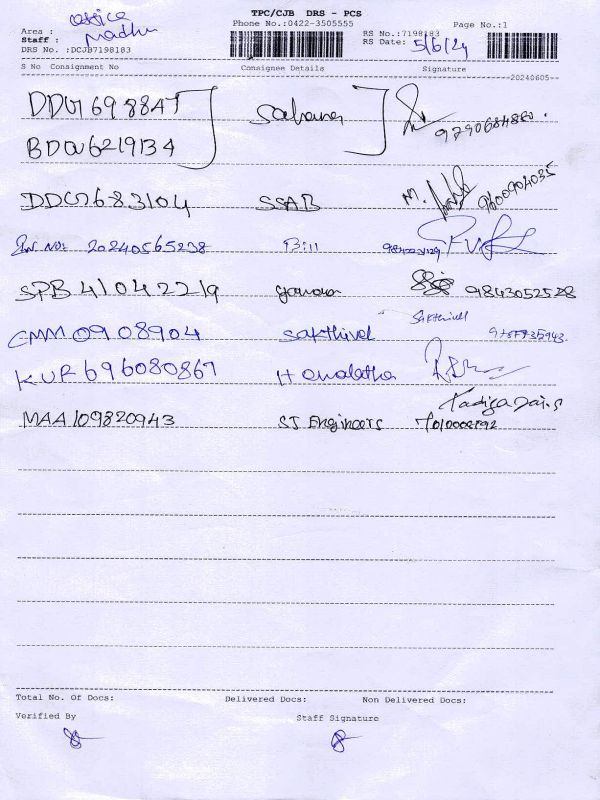 TPC/CJB DRS - PCS
Phone No.:0422-3505555
Page No.:1
Area : office
Staff : Madhu
DRS No. :DCJB7198183
RS No.:7198183
RS Date: 5/6/24
S No Consignment No Consignee Details Signature
20240605
DDG1698847 Sahana
BDW6219134 9790684880.
DDG1683104 SSAB M. 9600904035
20240565238 Bill
SPB41042219 9843052528
CMM0908904 Sakthivel Sakthivel
KUR696080867
MAA109820943 SJ Engineers
Total No. Of Docs: Delivered Docs: Non Delivered Docs:
Verified By Staff Signature